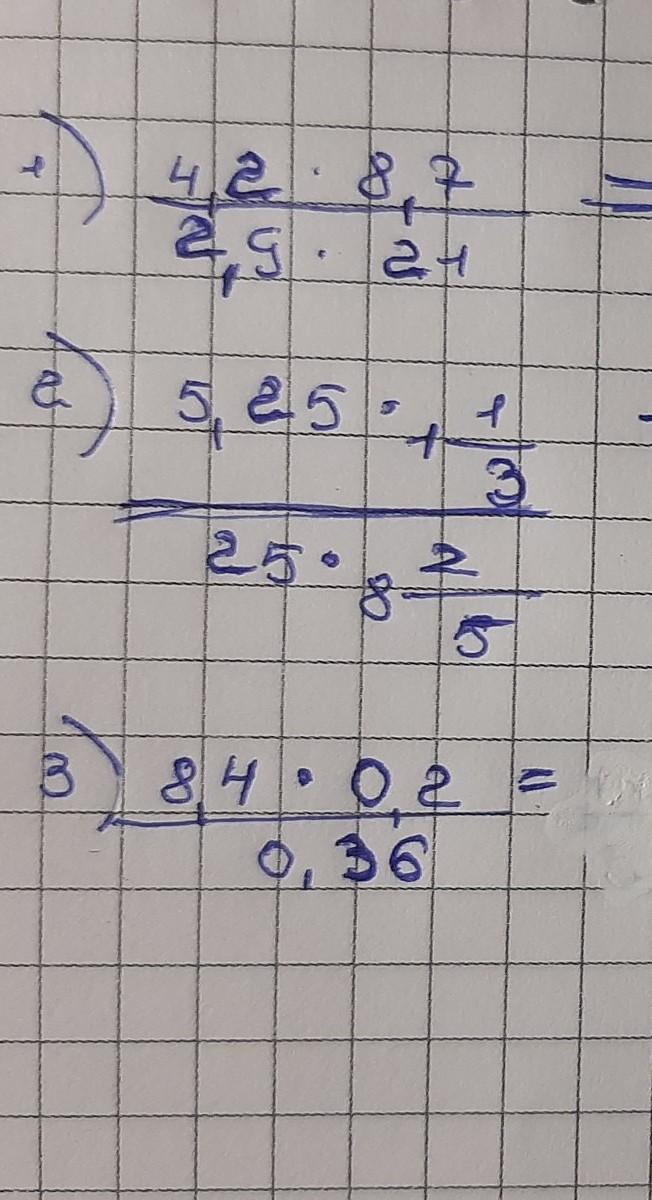 1) 4,2 · 8,7 =
2,9 · 21
2) 5,25 · 1 1
3
25 · 8 2
5
3) 8,4 · 0,2 =
0,36